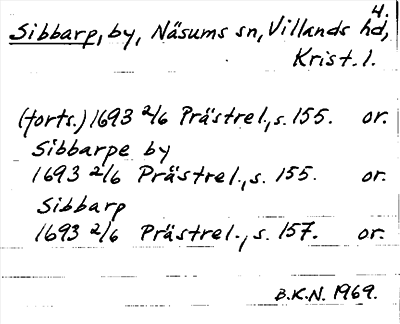 4.
Sibbarp, by, Näsums sn, Villands hd,
Krist. l.
(forts.) 1693 2/6 Prästrel., s. 155. or.
Sibbarpe by
1693 2/6 Prästrel., s. 155. or.
Sibbarp
1693 2/6 Prästrel., s. 157. or.
B.K.N. 1969.